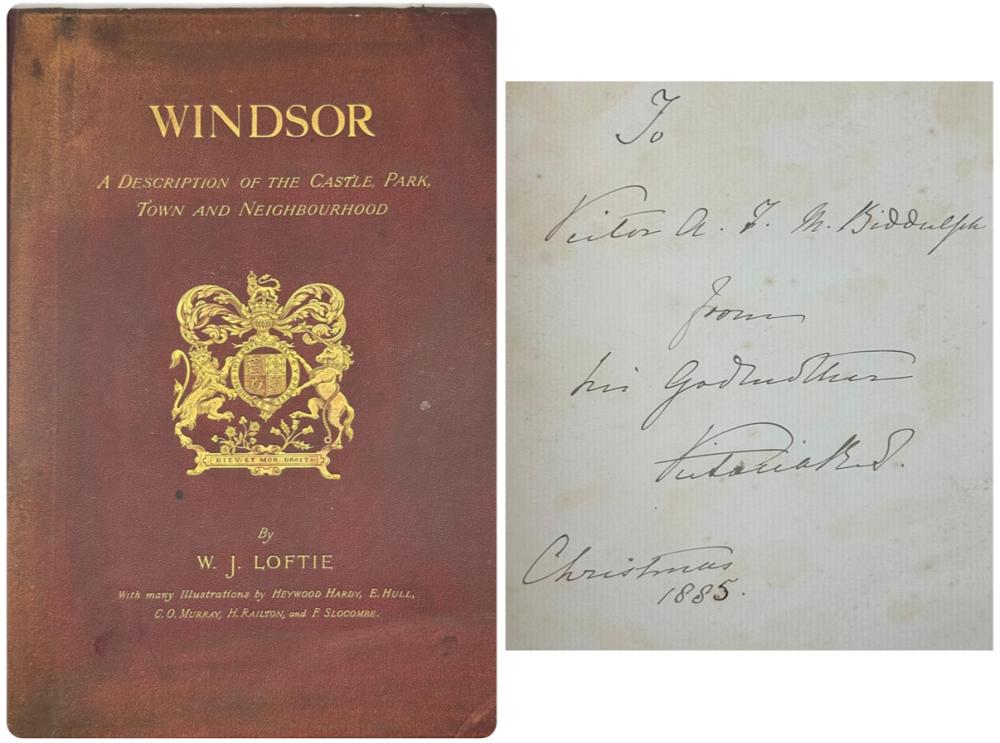 WINDSOR
A DESCRIPTION OF THE CASTLE, PARK,
TOWN AND NEIGHBOURHOOD
DIEV·ET MON·DROIT
By
W. J. LOFTIE
With many Illustrations by HEYWOOD HARDY, E. HULL,
C. O. MURRAY, H. RAILTON, and F. SLOCOMBE.
To
Victor A. F. M. Biddulph
from
his Godmother
Victoria R.I.
Christmas
1885.